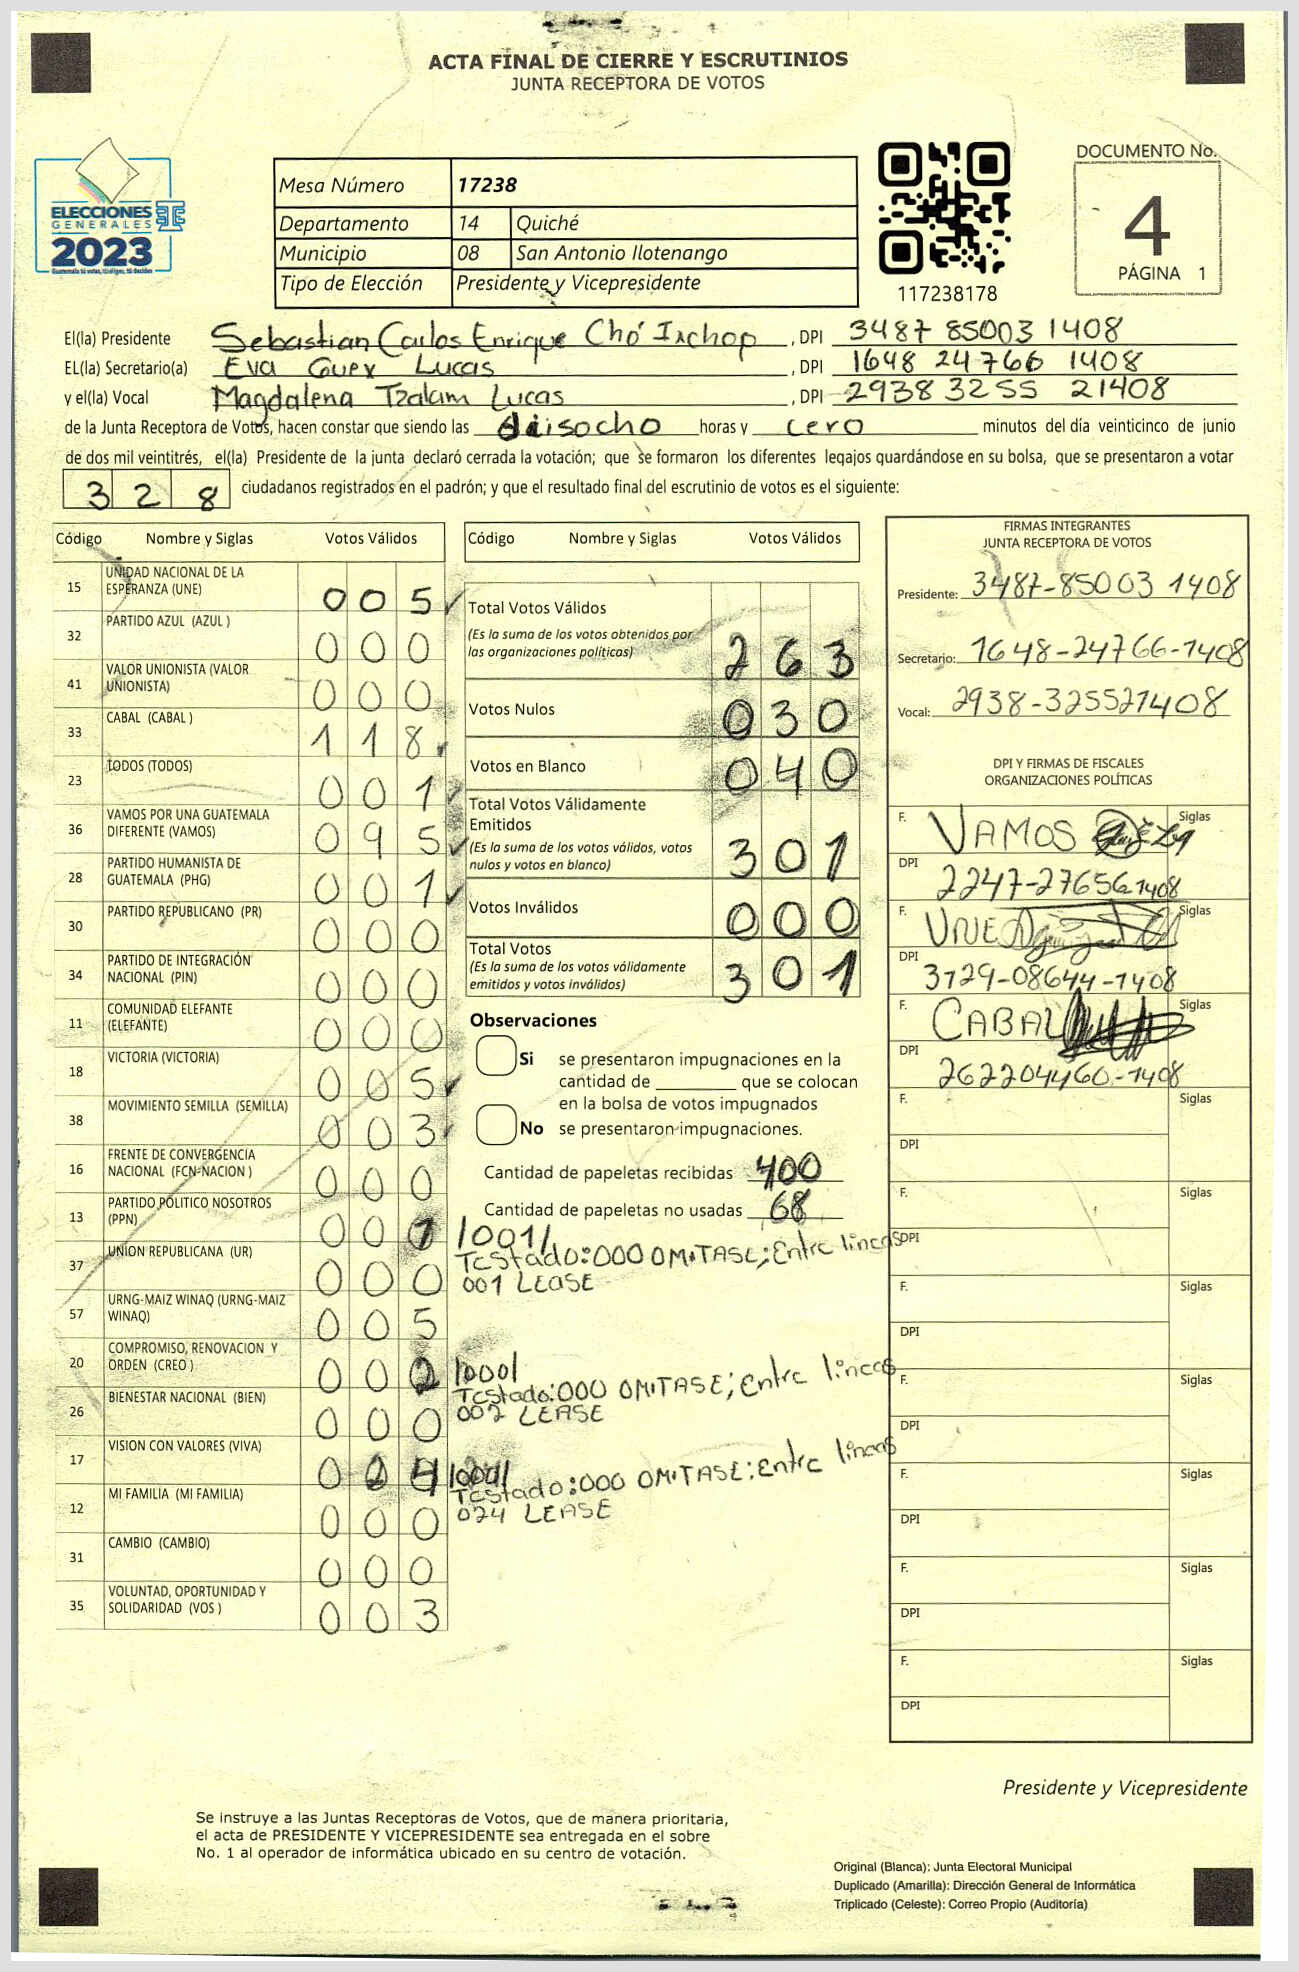 ACTA FINAL DE CIERRE Y ESCRUTINIOS
JUNTA RECEPTORA DE VOTOS
ELECCIONES
GENERALES
2023
Guatemala tú votas, tú eliges, tú decides
Mesa Número 17238
Departamento 14 Quiché
Municipio 08 San Antonio Ilotenango
Tipo de Elección Presidente y Vicepresidente
117238178
DOCUMENTO No.
4
PÁGINA 1
El(la) Presidente Sebastian Carlos Enrique Chó Ixchop, DPI 3487 85003 1408
EL(la) Secretario(a) Eva Guex Lucas, DPI 1648 24766 1408
y el(la) Vocal Magdalena Tzalam Lucas, DPI 2938 3255 21408
de la Junta Receptora de Votos, hacen constar que siendo las diisocho horas y cero minutos del día veinticinco de junio
de dos mil veintitrés, el(la) Presidente de la junta declaró cerrada la votación; que se formaron los diferentes legajos guardándose en su bolsa, que se presentaron a votar
328 ciudadanos registrados en el padrón; y que el resultado final del escrutinio de votos es el siguiente:
Código Nombre y Siglas Votos Válidos
15 UNIDAD NACIONAL DE LA ESPERANZA (UNE) 005
32 PARTIDO AZUL (AZUL ) 000
41 VALOR UNIONISTA (VALOR UNIONISTA) 000
33 CABAL (CABAL ) 118
23 TODOS (TODOS) 001
36 VAMOS POR UNA GUATEMALA DIFERENTE (VAMOS) 095
28 PARTIDO HUMANISTA DE GUATEMALA (PHG) 001
30 PARTIDO REPUBLICANO (PR) 000
34 PARTIDO DE INTEGRACIÓN NACIONAL (PIN) 000
11 COMUNIDAD ELEFANTE (ELEFANTE) 000
18 VICTORIA (VICTORIA) 005
38 MOVIMIENTO SEMILLA (SEMILLA) 003
16 FRENTE DE CONVERGENCIA NACIONAL (FCN-NACION ) 000
13 PARTIDO POLITICO NOSOTROS (PPN) 001 /001/
Testado:000 OMITASE; Entre lineas
001 LEASE
37 UNION REPUBLICANA (UR) 000
57 URNG-MAIZ WINAQ (URNG-MAIZ WINAQ) 005
20 COMPROMISO, RENOVACION Y ORDEN (CREO ) 002
Testado:000 OMITASE; Entre lineas
002 LEASE
26 BIENESTAR NACIONAL (BIEN) 000
17 VISION CON VALORES (VIVA) 024
Testado:000 OMITASE; Entre lineas
024 LEASE
12 MI FAMILIA (MI FAMILIA) 000
31 CAMBIO (CAMBIO) 000
35 VOLUNTAD, OPORTUNIDAD Y SOLIDARIDAD (VOS ) 003
Código Nombre y Siglas Votos Válidos
Total Votos Válidos 263
(Es la suma de los votos obtenidos por
las organizaciones políticas)
Votos Nulos 030
Votos en Blanco 040
Total Votos Válidamente
Emitidos
(Es la suma de los votos válidos, votos
nulos y votos en blanco) 301
Votos Inválidos 000
Total Votos
(Es la suma de los votos válidamente
emitidos y votos inválidos) 301
Observaciones
Si se presentaron impugnaciones en la
cantidad de ________ que se colocan
en la bolsa de votos impugnados
No se presentaron impugnaciones.
Cantidad de papeletas recibidas 400
Cantidad de papeletas no usadas 68
FIRMAS INTEGRANTES
JUNTA RECEPTORA DE VOTOS
Presidente: 3487-85003 1408
Secretario: 1648-24766-1408
Vocal: 2938-325521408
DPI Y FIRMAS DE FISCALES
ORGANIZACIONES POLÍTICAS
F. VAMOS Siglas
DPI 2247-27656-1408
F. UNE Siglas
DPI 3729-08644-1408
F. CABAL Siglas
DPI 262204460-1408
F. Siglas
DPI
F. Siglas
DPI
F. Siglas
DPI
F. Siglas
DPI
F. Siglas
DPI
F. Siglas
DPI
F. Siglas
DPI
Presidente y Vicepresidente
Se instruye a las Juntas Receptoras de Votos, que de manera prioritaria,
el acta de PRESIDENTE Y VICEPRESIDENTE sea entregada en el sobre
No. 1 al operador de informática ubicado en su centro de votación.
Original (Blanca): Junta Electoral Municipal
Duplicado (Amarilla): Dirección General de Informática
Triplicado (Celeste): Correo Propio (Auditoría)